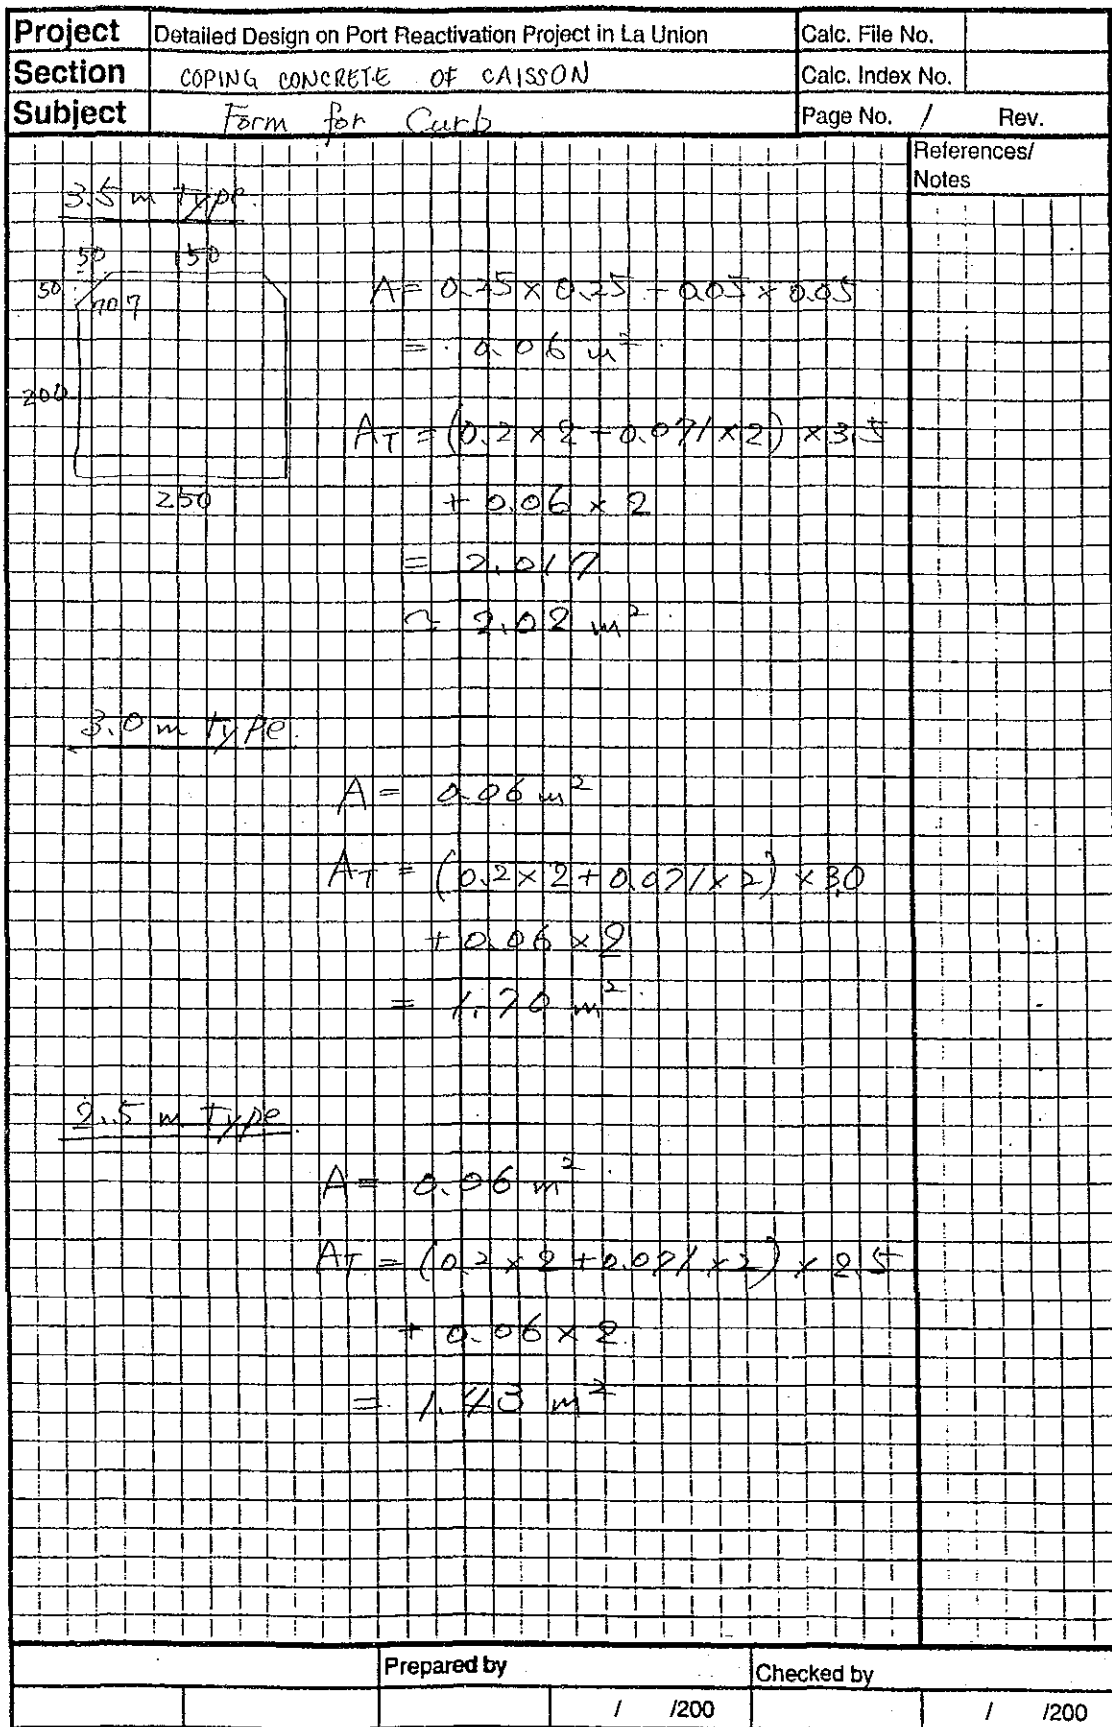 Project Detailed Design on Port Reactivation Project in La Union Calc. File No.
Section COPING CONCRETE OF CAISSON Calc. Index No.
Subject Form for Curb Page No. / Rev.
References/
Notes
3.5 m type.
50 150
50
70.7
A = 0.25 × 0.25 - 0.05 × 0.05
= 0.06 m²
200
A_T = (0.2 × 2 + 0.071 × 2) × 3.5
250
+ 0.06 × 2
= 2.017
≃ 2.02 m²
3.0 m type.
A = 0.06 m²
A_T = (0.2 × 2 + 0.071 × 2) × 3.0
+ 0.06 × 2
= 1.70 m²
2.5 m Type
A = 0.06 m²
A_T = (0.2 × 2 + 0.071 × 2) × 2.5
+ 0.06 × 2
= 1.43 m²
Prepared by Checked by
/ /200 / /200